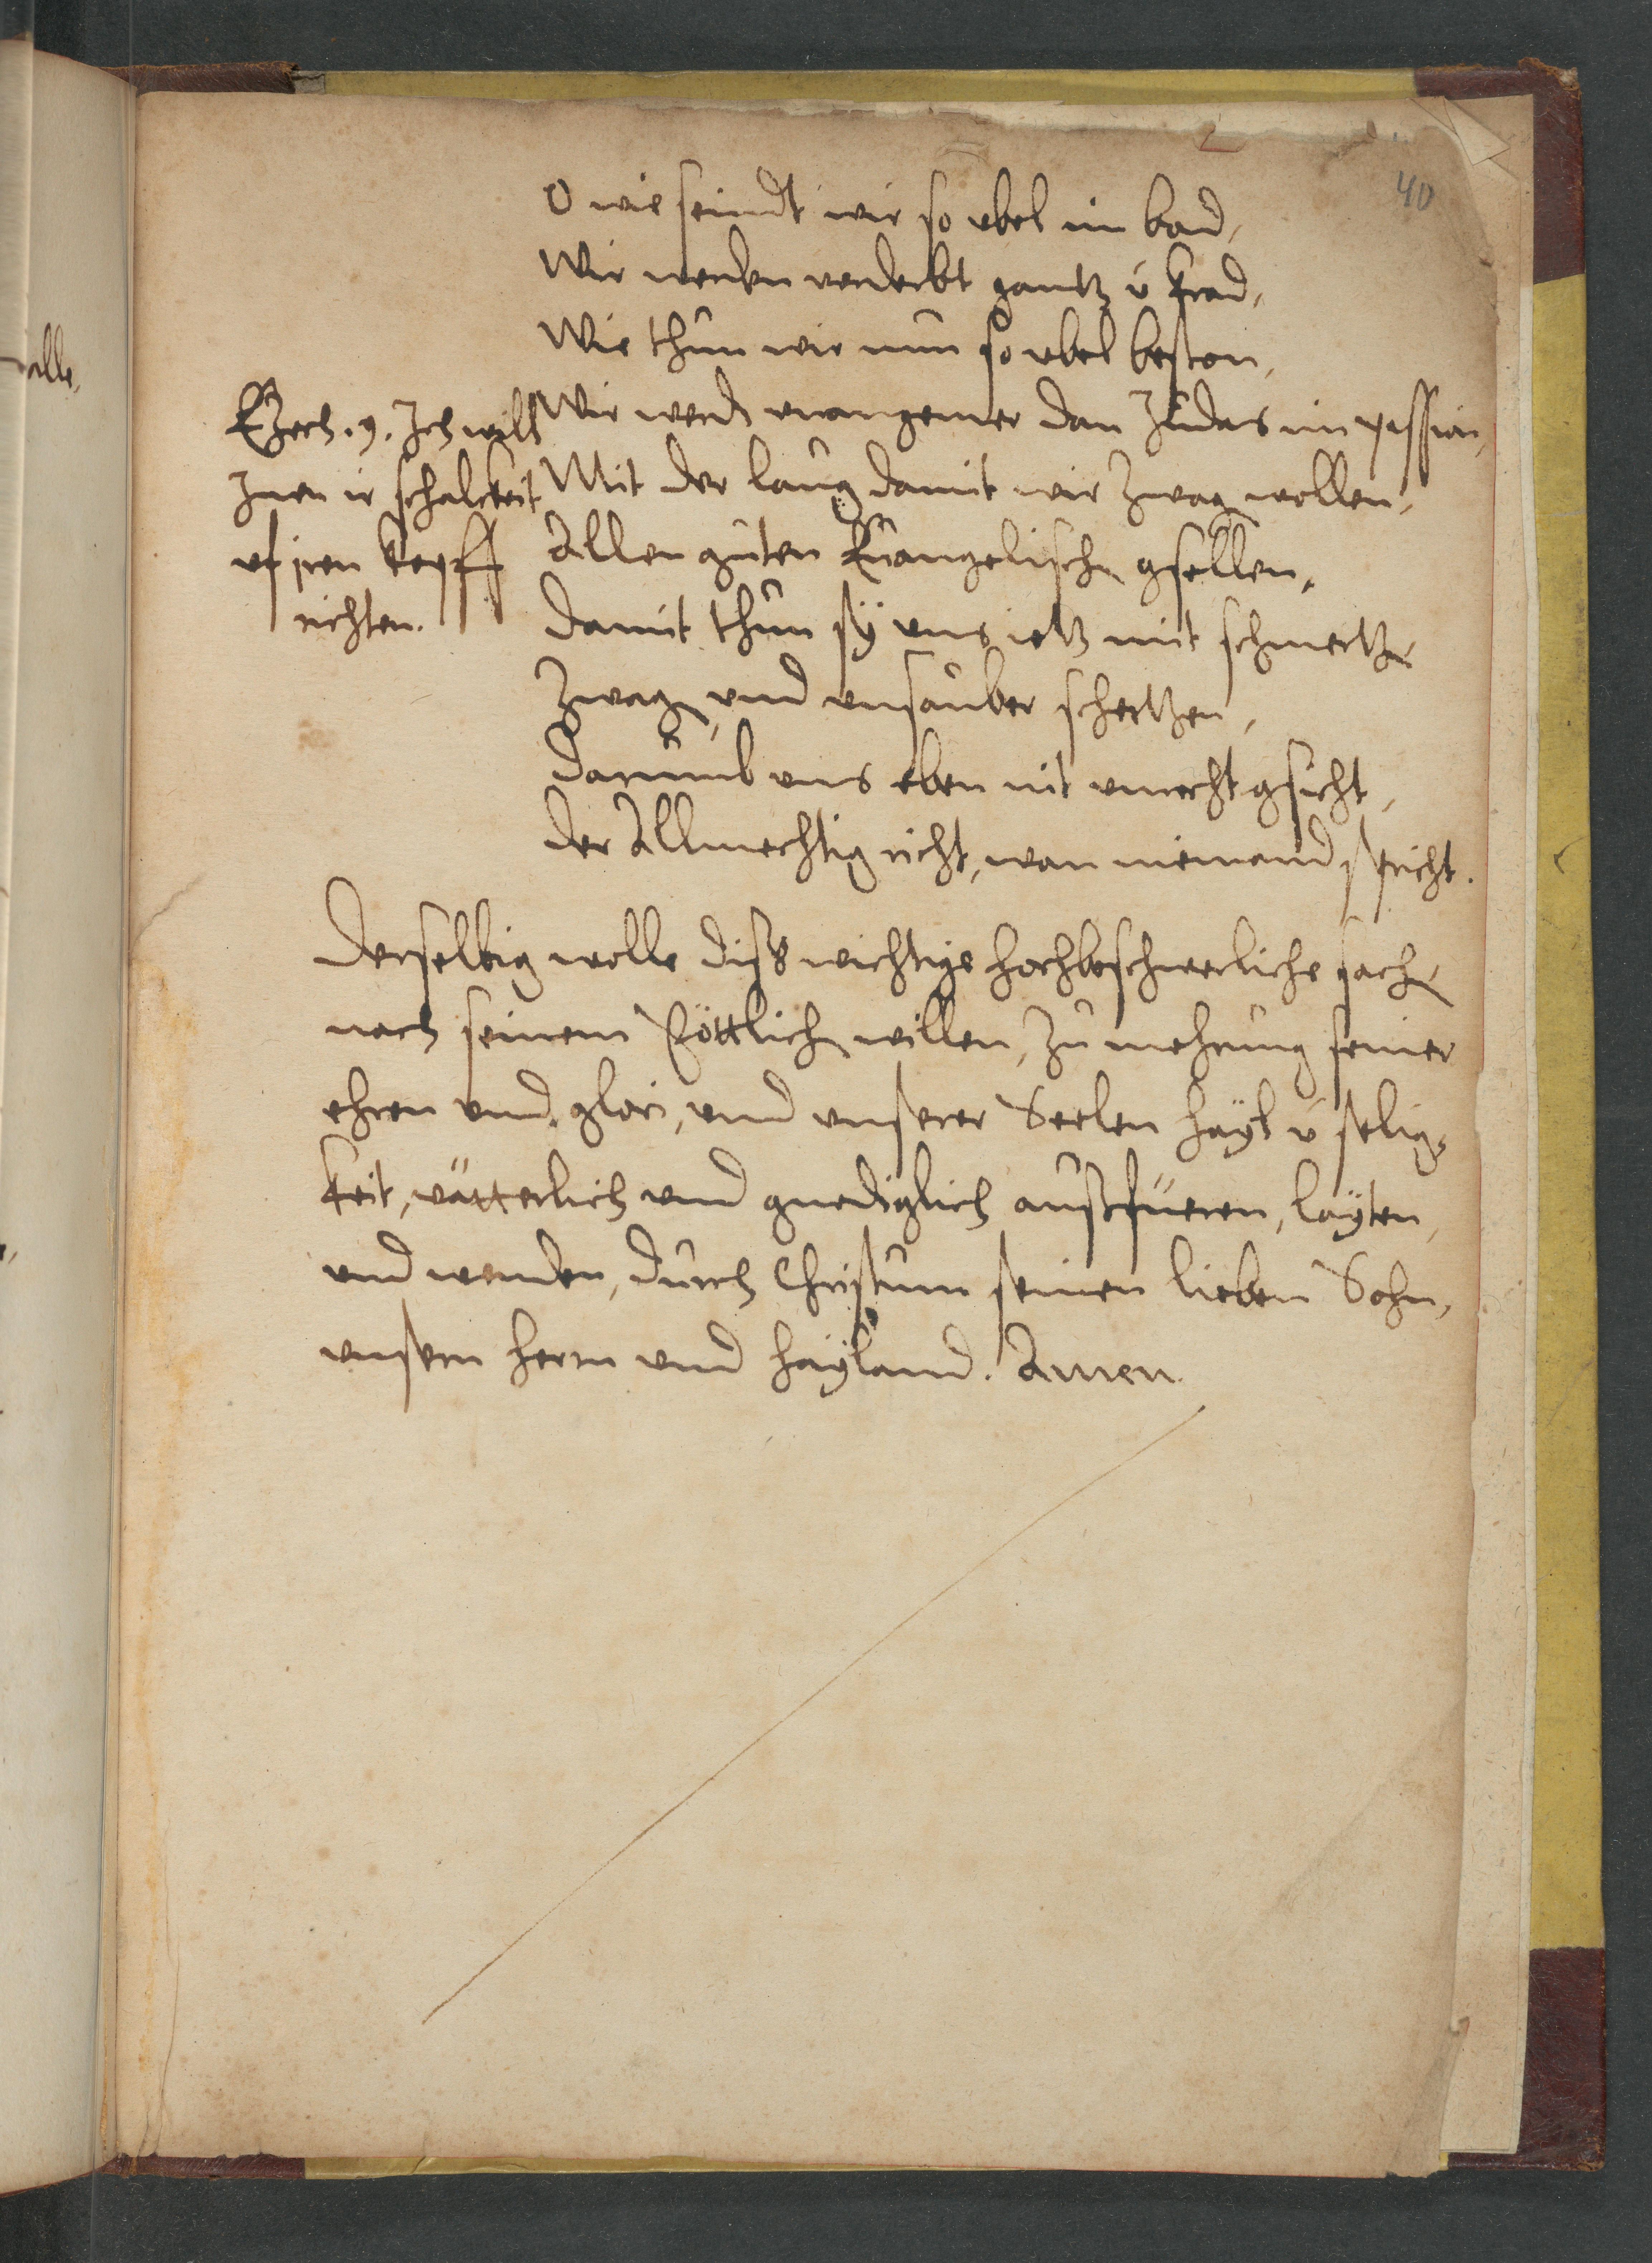 40
O wie seindt wir so vbel im bad,
Wir werden verderbt gantz v̄ krad,
Wie thun wir nun so vbel beston,
Wir werdn vnangemer dan Judas im passion,
Mit der laug damit wir zwagn wollen,
Allen guten Euangelischn gsellen,
Damit thun sÿ vns ietz mit schmertzn
Zwagn, vnd vnsauber schertzen,
Darumb vns eben nit vnrecht gsicht,
Der Allmechtig richt, wan niemand spricht.
Ezech. 9. Ich will
Inen ir schalckeit
vf iren kopff
richten.
Derselbig wolle diss wichtige hochbeschwerliche sachn
nach seinem Göttlichn willen, zu mehrung seiner
ehren vnd glori, vnd vnserer Seelen haÿl v̄ selig-
keit, vätterlich vnd gnediglich aussfüeren, laÿten,
vnd wenden, durch Christum seinen lieben Sohn,
vnsern herrn vnd haÿland. Amen.
alle,